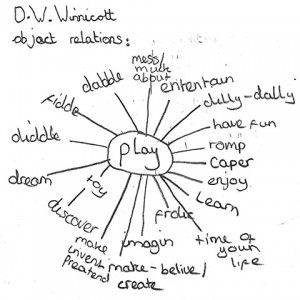 D.W. Winnicott
object relations:
mess/
muck
about
dabble
entertain
fiddle
dilly-dally
have fun
diddle
play
romp
caper
enjoy
dream
toy
learn
discover
frolic
time of
your
life
make
invent
preatend
imagin
make-belive/
create